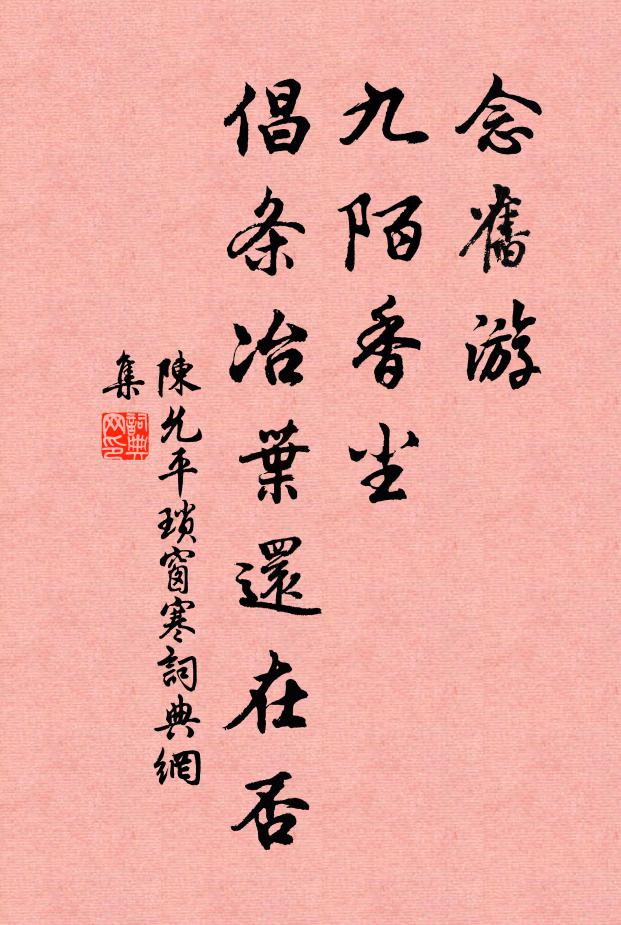 念舊游
九陌香尘
倡条冶葉還在否
陳允平瑣窗寒詞典網
集
詞典
网印